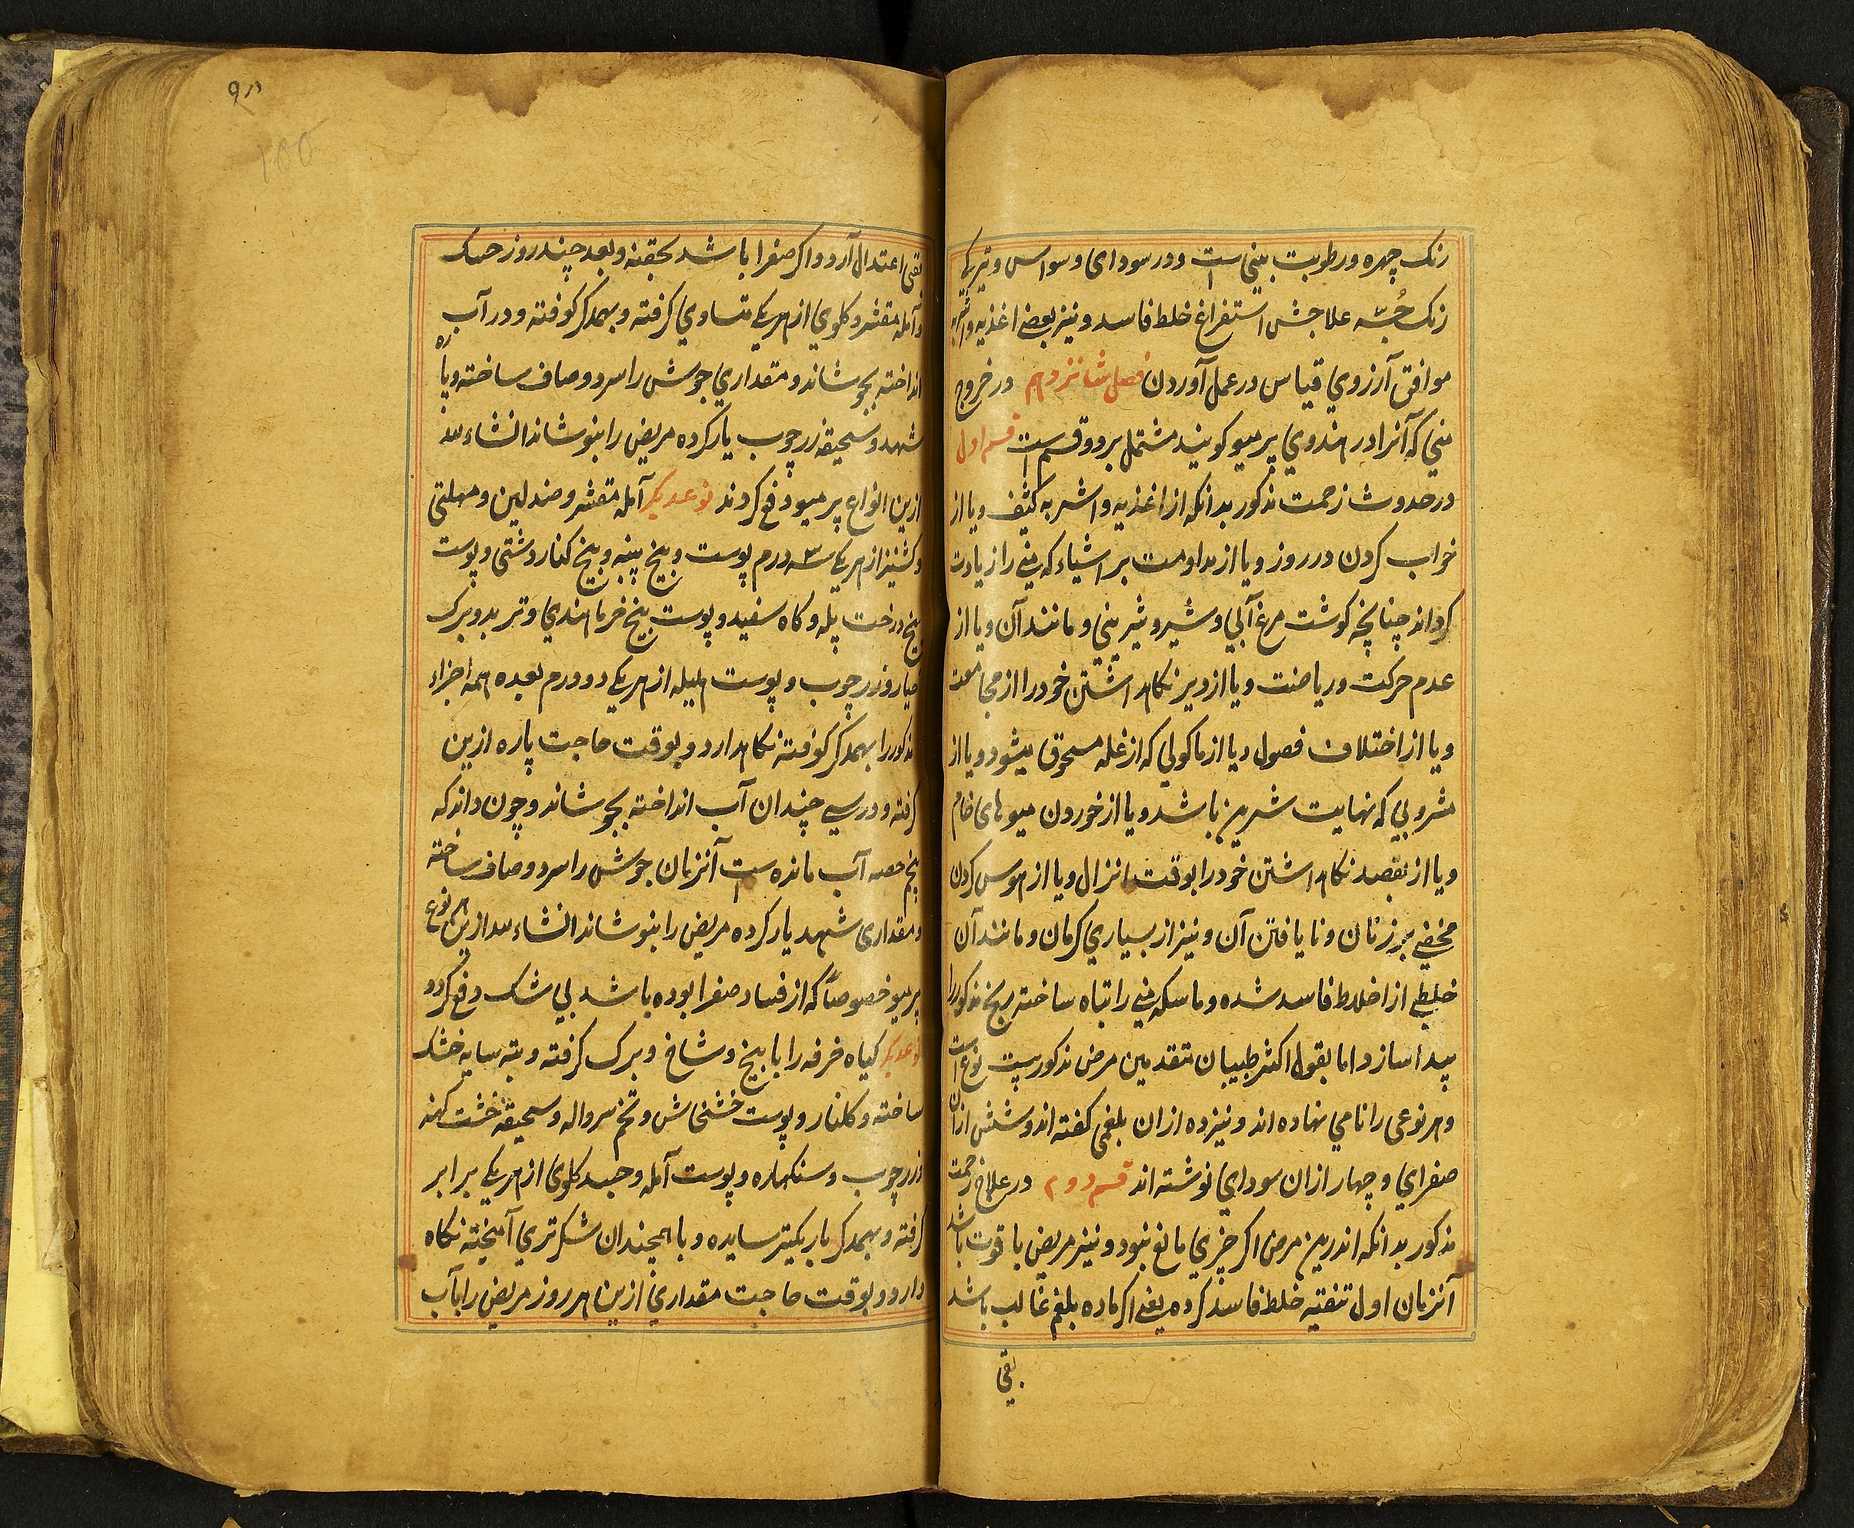 رنک چهره و رطوبت بینی است و در سودای وسواس و تیرکی
رنک جُثّه علاجش استفراغ خلط فاسد و نیز بعضی اغذیه و اشربه
موافق آرزوي قیاس در عمل آوردن فصل شانزدهم در خروج
مني که آنرا در هندوي پرمیو کویند مشتمل بر دو قسم است قسم اول
در حدوث زحمت مذکور بدانکه از اغذیه و اشربه کثیف و یا از
خواب کردن در روز و یا از مداومت بر اشیاء که مني را زیادت
کرداند چنانچه کوشت مرغ آبي و شیر و شیریني و مانند آن و یا از
عدم حرکت و ریاضت و یا از دیر نکاهداشتن خود را از مجامعت
و یا از اختلاف فصول و یا از ماکولي که از غله مسحوق میشود و یا از
مشروبي که نهایت شیرین باشد و یا از خوردن میوهای خام
و یا از بقصد نکاهداشتن خود را بوقت انزال و یا از هوس کردن
مخفي بر زنان و نا یافتن آن و نیز از بسیاري کرمان و مانند آن
خلطي از اخلاط فاسد شده و ماسکه مني را تباه ساخته رنج مذکور را
پیدا سازد اما بقول اکثر طبیبان متقدمین مرض مذکور بیست نوع است
و هر نوعی را نامي نهاده اند و نیز ده ازان بلغمی کفته اند و شش ازان
صفراي و چهار ازان سوداي نوشته اند قسم دوم در علاج زحمت
مذکور بدانکه اندرین مرض اکر چیزي مانع نبود و نیز مریض با قوت باشد
آنزمان اول تنقیه خلط فاسد کرده یعنے اکر ماده بلغم غالب باشد
بقي
بقي اعتدال آرد و اکر صفرا باشد بحقنه و بعد چند روز
و آمله مقشر و کلوي از هر یکے متساوي کرفته و بهمدکر کوفته و در آب
انداخته بجوشاند و مقداري جوشش را سرد و صاف ساخته و پاره
شهد و سحیقه زرچوب یار کرده مریض را بنوشاند انشاء الله
ازین انواع پرمیو دفع کردند نوعدیکر آمله مقشر و صندلین و
و کشنیز از هر یکے سه درم پوست و بیخ پنبه و بیخ کنار دشتی و پوست
بیخ درخت پله و کاه سفید و پوست بیخ خرما هندي و تربد و برک
و زرچوب و پوست هلیله از هر یکے دو درم بعده همه اجزاء
مذکور را بهمدکر کوفته نکاهدارد و بوقت حاجت پاره ازین
کرفته و در سي چندان آب انداخته بجوشاند و چون داند که
پنجم حصه آب مانده است آنزمان جوشش را سرد و صاف ساخته
و مقداری شهد یار کرده مریض را بنوشاند انشاء الله ازین هر نوع
پرمیو خصوصاً که از فساد صفرا بوده باشد بي شک دفع کردد
نوعدیکر کیاه خرفه را با بیخ و شاخ و برک کرفته و بته سایه خشک
ساخته و کلنار و پوست خشخاش و تخم سرواله و سحیقه خشت کهنه
زرچوب و سنکهاره و پوست آمله و جسد کلوی از هر یکے برابر
کرفته و بهمدکر باریکتر سایده و با همچندان شکر تري آمیخته نکاه
دارد و بوقت حاجت مقداري ازین هر روز مریض را بآب